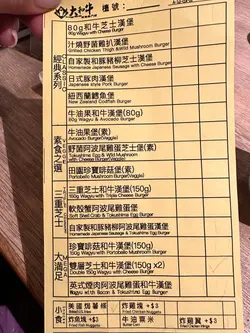 大和牛 檯號:
經典系列
80g和牛芝士漢堡
80g Wagyu with Cheese Burger
汁燒野菌雞扒漢堡
Grilled Chicken Thigh & Wild Mushroom Burger
自家製和豚豬柳芝士漢堡
Homemade Japanese Sausage with Cheese Burger
日式豚肉漢堡
Japanese-style Pork Burger
紐西蘭鱈魚堡
New Zealand Codfish Burger
牛油果和牛漢堡(80g)
80g Wagyu & Avocado Burger
素食之選
牛油果堡(素)
Avocado Burger(Veggie)
野菌阿波尾雞蛋芝堡(素)
Tokushima Egg & Wild Mushroom
with Cheese Burger(Veggie)
田園珍寶啡菇堡(素)
Portobello Mushroom Burger(Veggie)
三重芝士
三重芝士和牛漢堡(150g)
150g Wagyu with Triple Cheese Burger
大滿足
軟殼蟹阿波尾雞蛋漢堡
Soft Shell Crab & Tokushima Egg Burger
自家製和豚豬柳阿波尾雞蛋漢堡
Homemade Japanese Sausage & Tokushima Egg Burger
珍寶啡菇和牛漢堡(150g)
150g Wagyu with Portobello Mushroom Burger
雙層芝士和牛漢堡(150g x2)
Double 150g Wagyu with Cheese Burger
英式煙肉阿波尾雞蛋和牛漢堡
Wagyu with Bacon & Tokushima Egg Burger
小食
美國炸薯條
炸雞塊 +$3
Fried Chicken Nuggets
炸魚塊 +$3
牛油粟米
炸雞翼 +$3